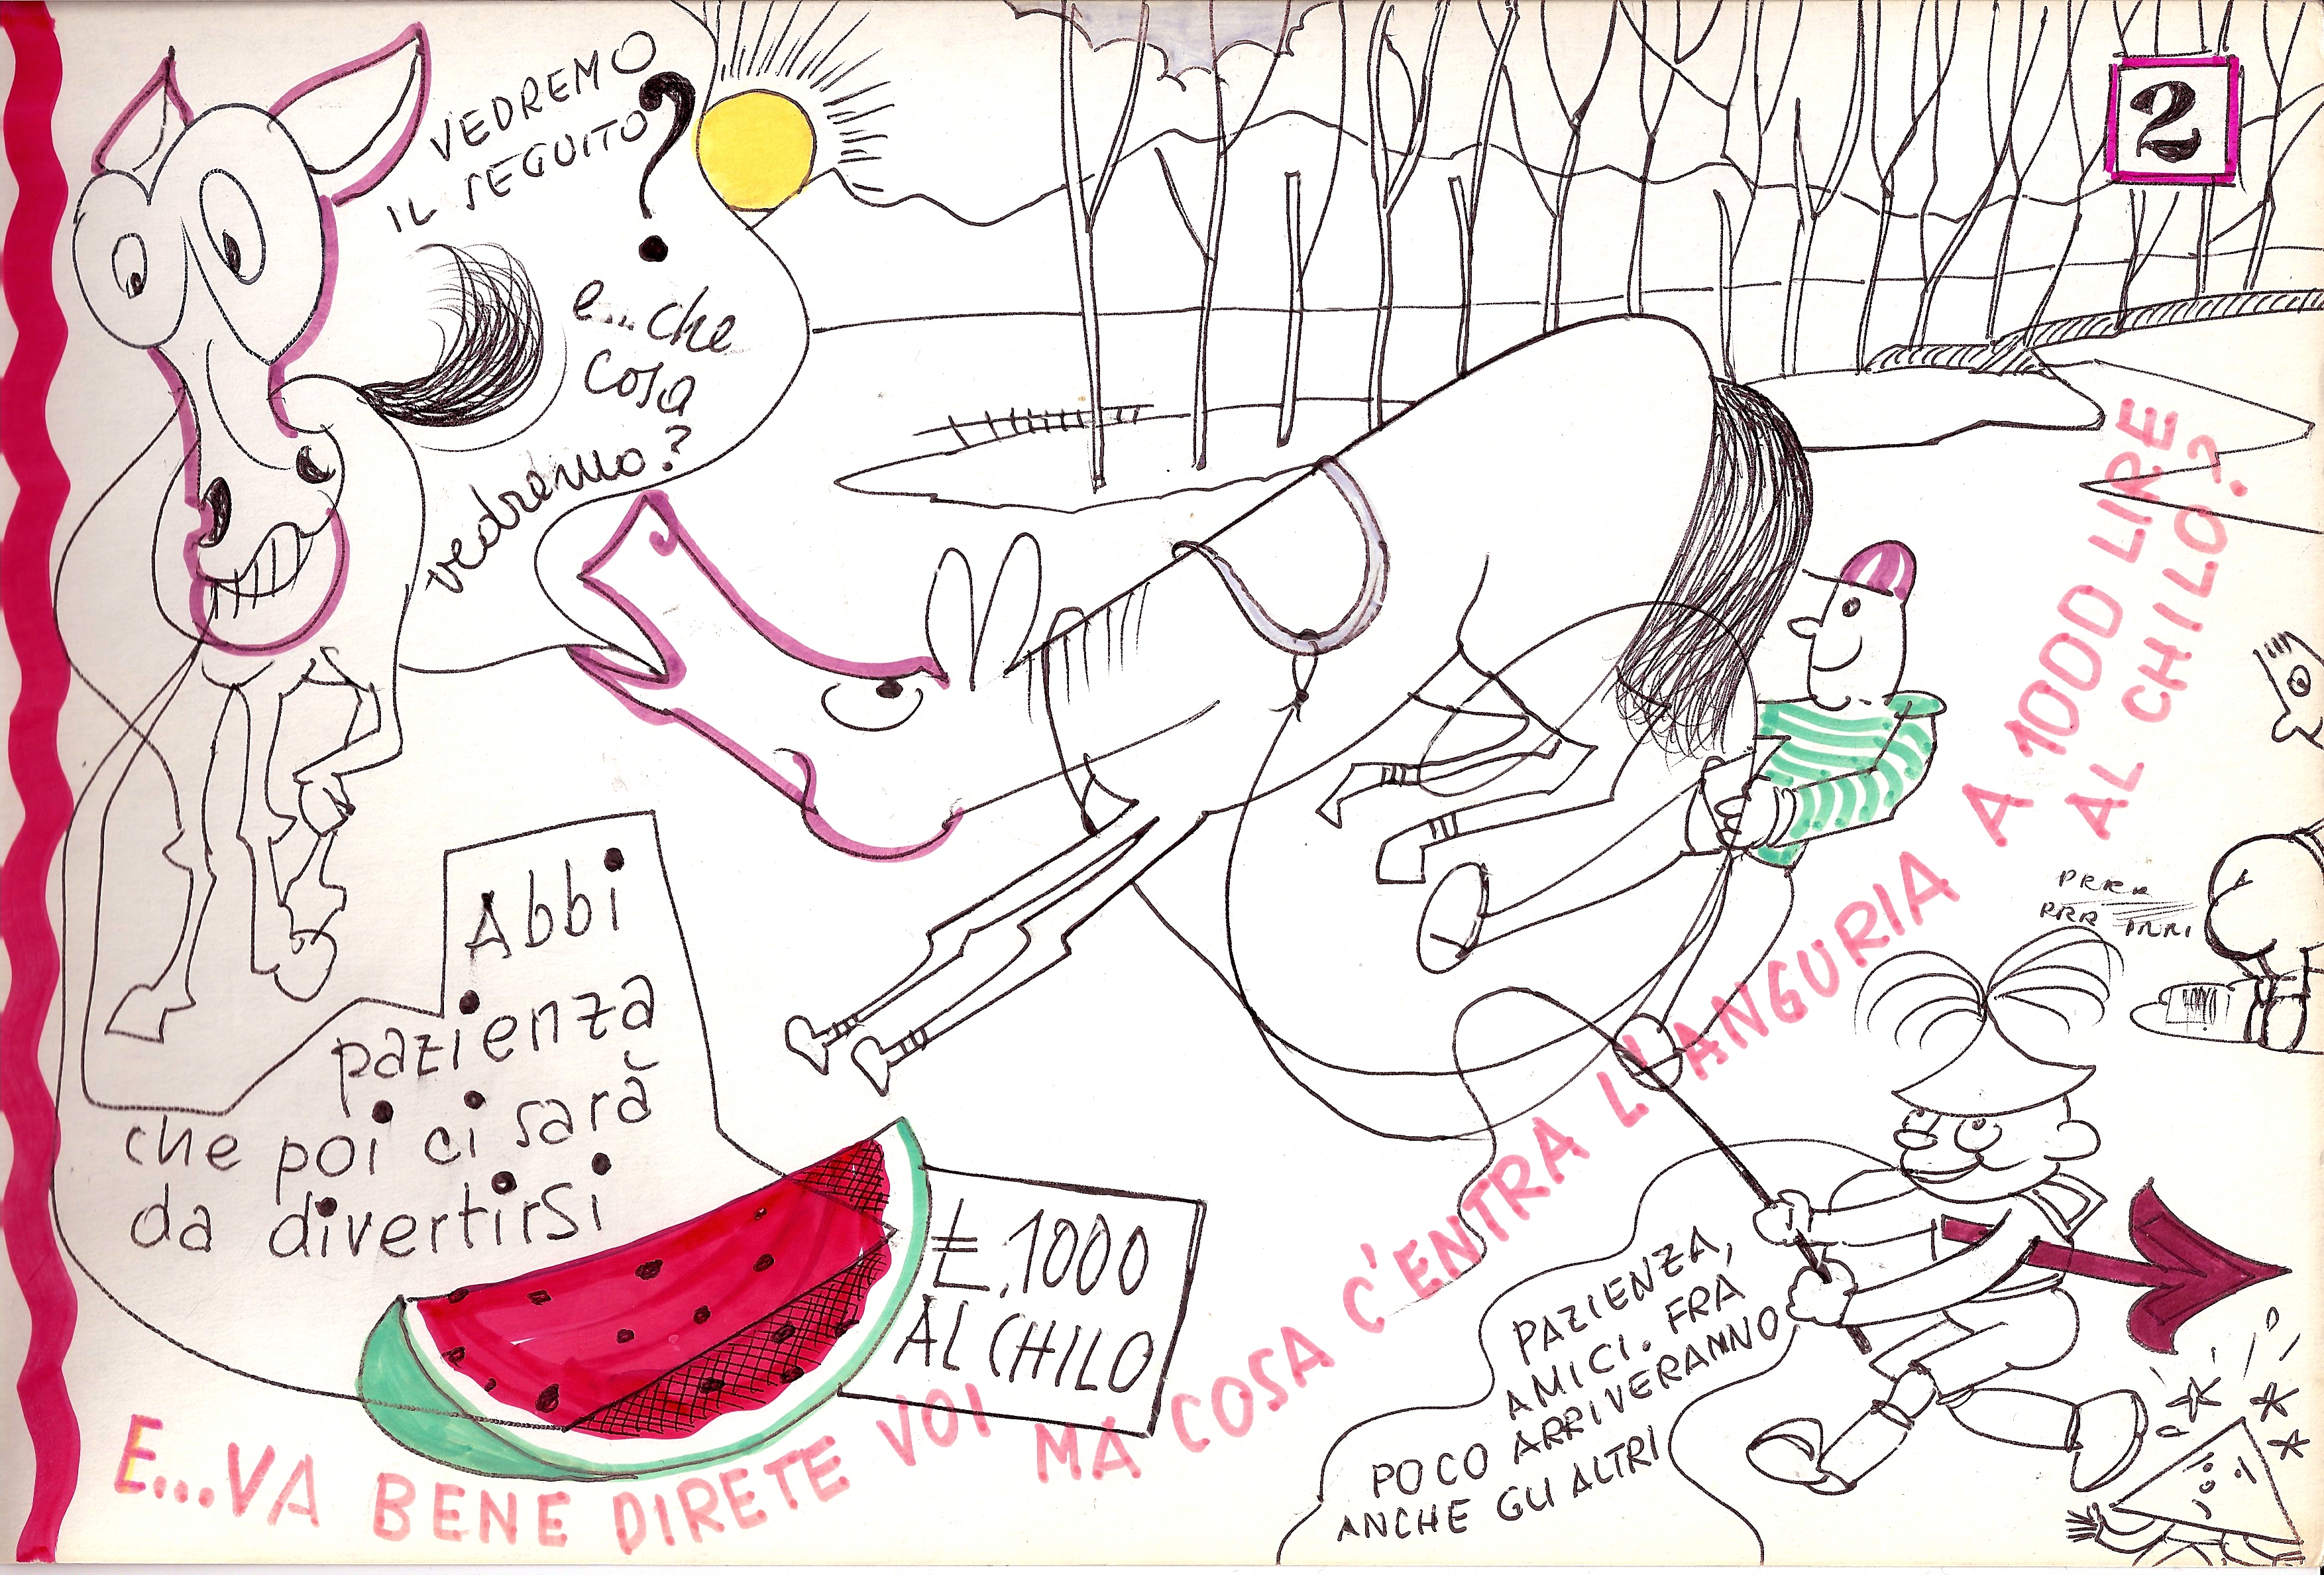 VEDREMO
IL SEGUITO?
e... che
cosa
vedremo?
2
Abbi
pazienza
che poi ci sarà
da divertirsi
£.1000
AL CHILO
E...VA BENE DIRETE VOI MA COSA C'ENTRA L'ANGURIA A 1000 LIRE
AL CHILO?
PAZIENZA,
AMICI. FRA
POCO ARRIVERANNO
ANCHE GLI ALTRI